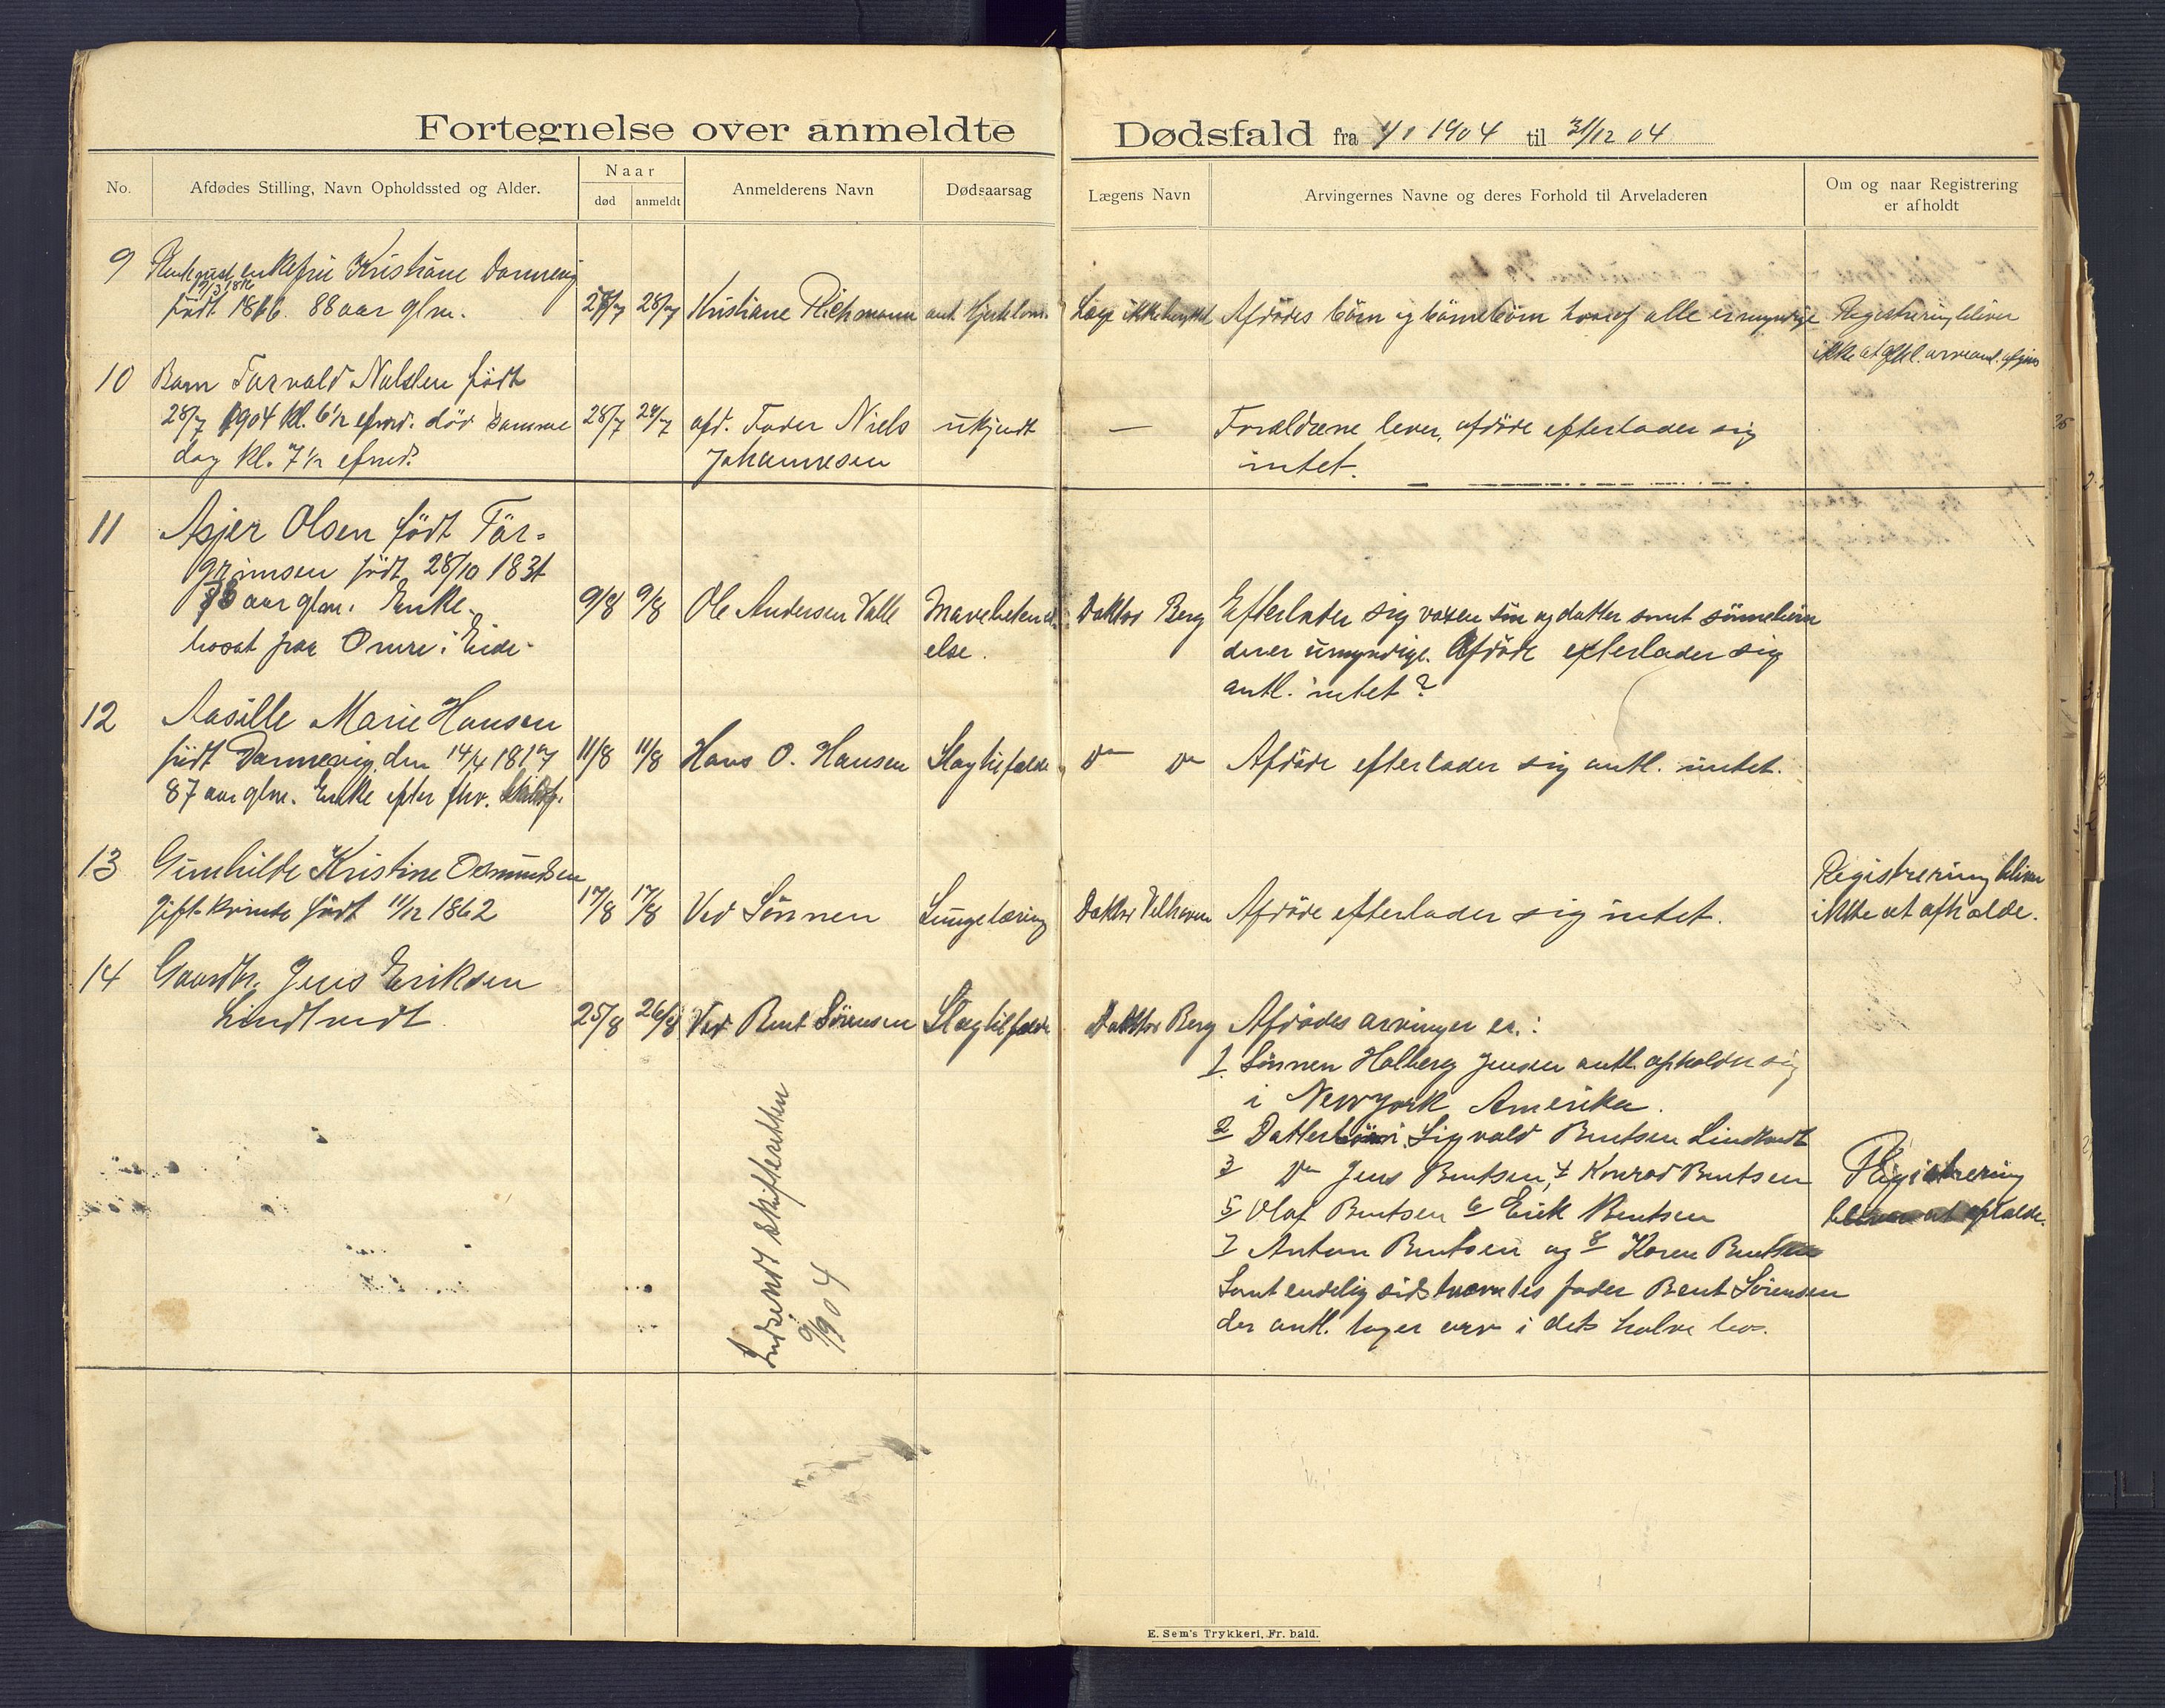 Fortegnelse over anmeldte Dødsfald fra 1/1 1904 til 31/12 04
No.
Afdødes Stilling, Navn Opholdssted og Alder.
Naar
død
anmeldt
Anmelderens Navn
Dødsaarsag
Lægens Navn
Arvingernes Navne og deres Forhold til Arveladeren
Om og naar Registrering
er afholdt
9
enkefru Kristiane Dannevig
født 1816. 88 aar glm.
28/7
Kristiane Richmann
Læge ikke
Afdødes børn og børnebørn hvoraf alle er myndige
Registrering bliver
ikke at
10
Barn Torvald Nilsen født
28/7 1904 kl. 6½ efmd. død samme
dag kl. 7½ efmd.
28/7
29/7
afd. Fader Niels
Johannesen
ukjendt
—
Forældrene lever, afdøde efterlader sig
intet.
11
Asjer Olsen født Tår-
grimsen født 28/10 1831
73 aar glm. Enke.
bosat paa Omre i Eide.
9/8
9/8
Ole Andersen Valle
Mavebetænd-
else.
Doktor Berg
Efterlader sig voxen søn og datter samt sønnebørn
der er umyndige. Afdøde efterlader sig
antl. intet?
12
Aasille Marie Hansen
født Dannevig den 14/4 1817
87 aar glm. Enke efter fhv.
11/8
11/8
Hans O. Hansen
Slagtilfælde
Do Do
Afdøde efterlader sig antl. intet.
13
Gunhilde Kristine Osmundsen
gift kvinde født 11/12 1862
17/8
17/8
Ved Sønnen
Lungetæring
Doktor Velhaven
Afdøde efterlader sig intet.
Registrering bliver
ikke at afholde.
14
Gaardbr. Jens Eriksen
Lindtvedt
25/8
26/8
Ved Bent Sørensen
Slagtilfælde
Doktor Berg
Afdødes arvinger er.:
1. Sønnen Holberg Jensen antl. opholder sig
i Newyork Amerika.
2 Datterbørn: Sigvald Bentsen Lindtvedt
3 Do Jens Bentsen, 4 Konrad Bentsen
5 Olaf Bentsen 6 Erik Bentsen
7 Anton Bentsen og 8 Karen Bentsen
Samt endelig sidstnævntes fader Bent Sørensen
der antl. tager arv i dets halve bo.
Registrering
bliver at afholde.
Indsendt skifteretten
9/9 04
E. Sem's Trykkeri, Fr. hald.